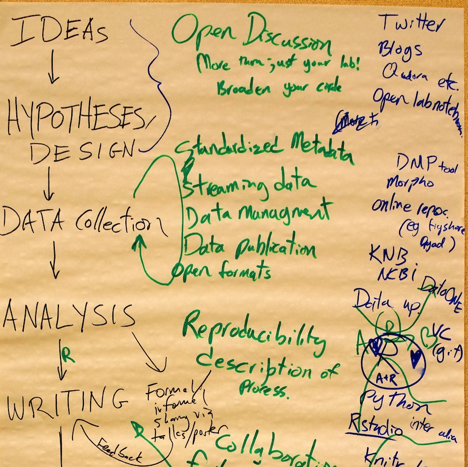 IDEAs
HYPOTHESES/
DESIGN
DATA Collection
ANALYSIS
R
WRITING
Formal
informal
sharing via
talks/poster
Feedback
Open Discussion
More than just your lab!
Broaden your circle
Standardized Metadata
Streaming data
Data Managment
Data publication
Open formats
Reproducibility
description of
Process.
R
Collaboration
Twitter
Blogs
etc.
Open lab notebooks
DMP tool
Morpho
online repos
(eg figshare
KNB
NCBI
DataONE
Data up
R
VC
(git)
A+R
Python
Rstudio inter alia